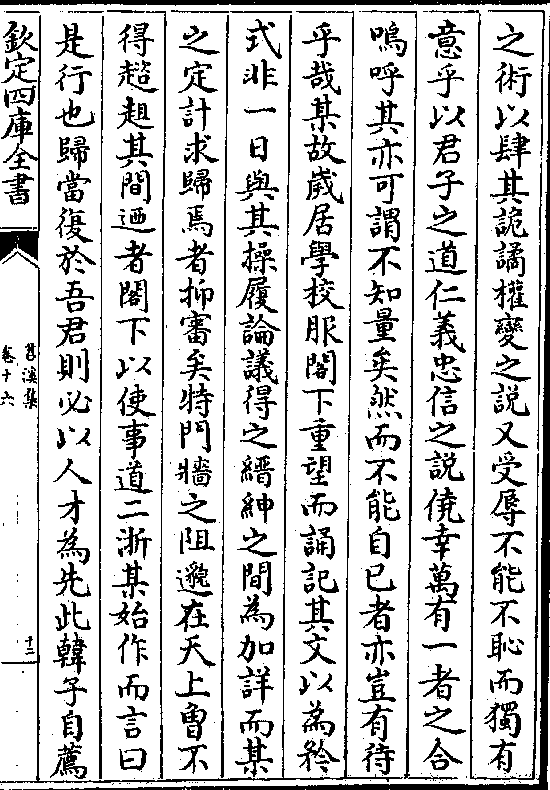 之術以肆其詭譎權變之說又受辱不能不恥而獨有
意乎以君子之道仁義忠信之說僥幸萬有一者之合
嗚呼其亦可謂不知量矣然而不能自已者亦豈有待
乎哉某故嵗居學校服閤下重望而誦記其文以為矜
式非一日與其操履論議得之縉紳之間為加詳而某
之定計求歸焉者抑審矣特門牆之阻邈在天上曾不
得趑趄其間迺者閤下以使事道二浙某始作而言曰
是行也歸當復於吾君則必以人才為先此韓子自薦
欽定四庫全書
卷十六
十二